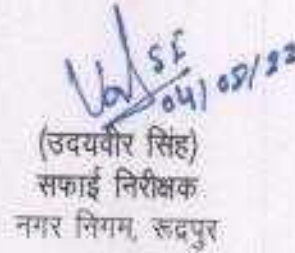 04/08/22
(उदयवीर सिंह)
सफाई निरीक्षक
नगर निगम, रूद्रपुर